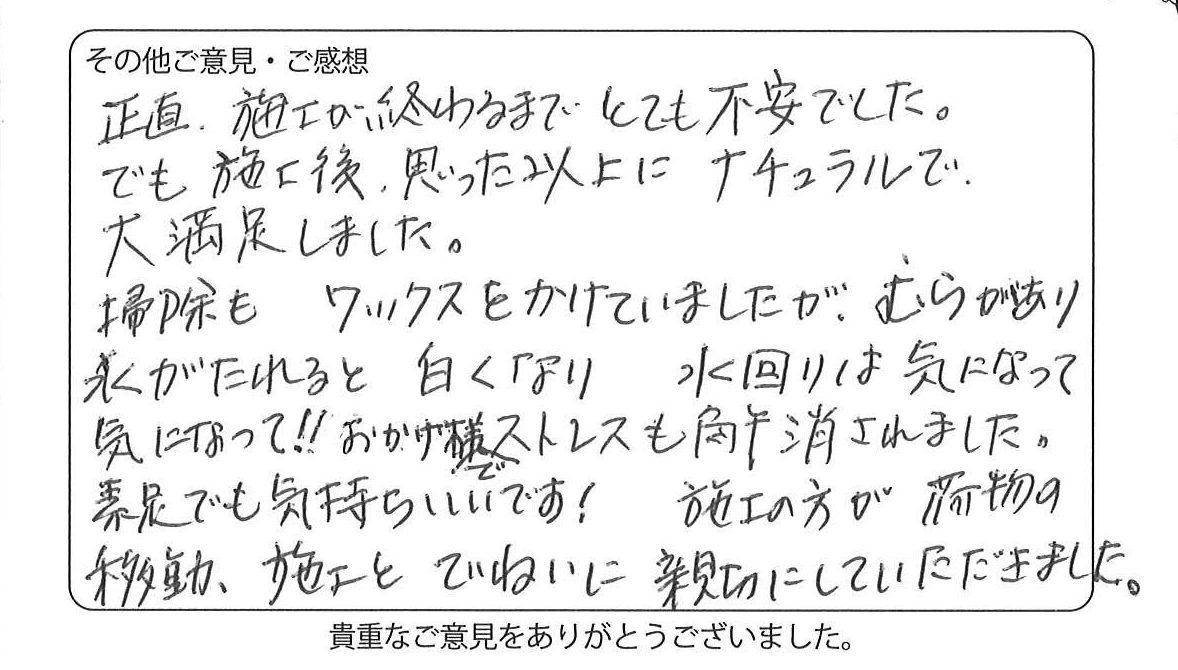 その他ご意見・ご感想
正直、施工が終わるまでとても不安でした。
でも施工後、思った以上に ナチュラルで、
大満足しました。
掃除も ワックスをかけていましたが、むらがあり
水がたれると 白くなり 水回りは気になって
気になって!! おかげ様でストレスも解消されました。
素足でも気持ちいいです! 施工の方が 荷物の
移動、施工と ていねいに 親切にしていただきました。
貴重なご意見をありがとうございました。